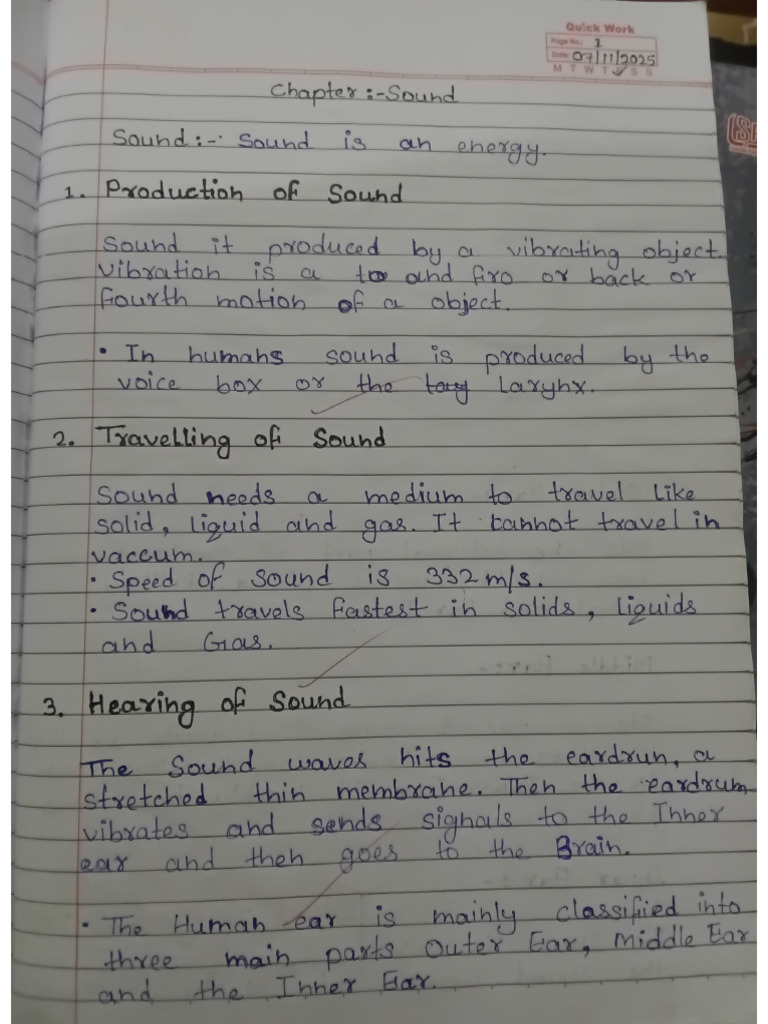 Quick Work
Page No.: 1
Date: 07/11/2025
M T W T F S S
Chapter:-Sound
Sound:- Sound is an energy.
1. Production of Sound
Sound it produced by a vibrating object.
vibration is a to and firo or back or
fourth motion of a object.
• In humans sound is produced by the
voice box or the Larynx.
2. Travelling of Sound
Sound needs a medium to travel like
solid, liquid and gas. It cannot travel in
vaccum.
• Speed of sound is 332 m/s.
• Sound travels fastest in solids, liquids
and Gas.
3. Hearing of Sound
The Sound waves hits the eardrun, a
stretched thin membrane. Then the eardrum
vibrates and sends signals to the Inner
ear and then goes to the Brain.
• The Human ear is mainly classified into
three main parts Outer Ear, Middle Ear
and the Inner Ear.